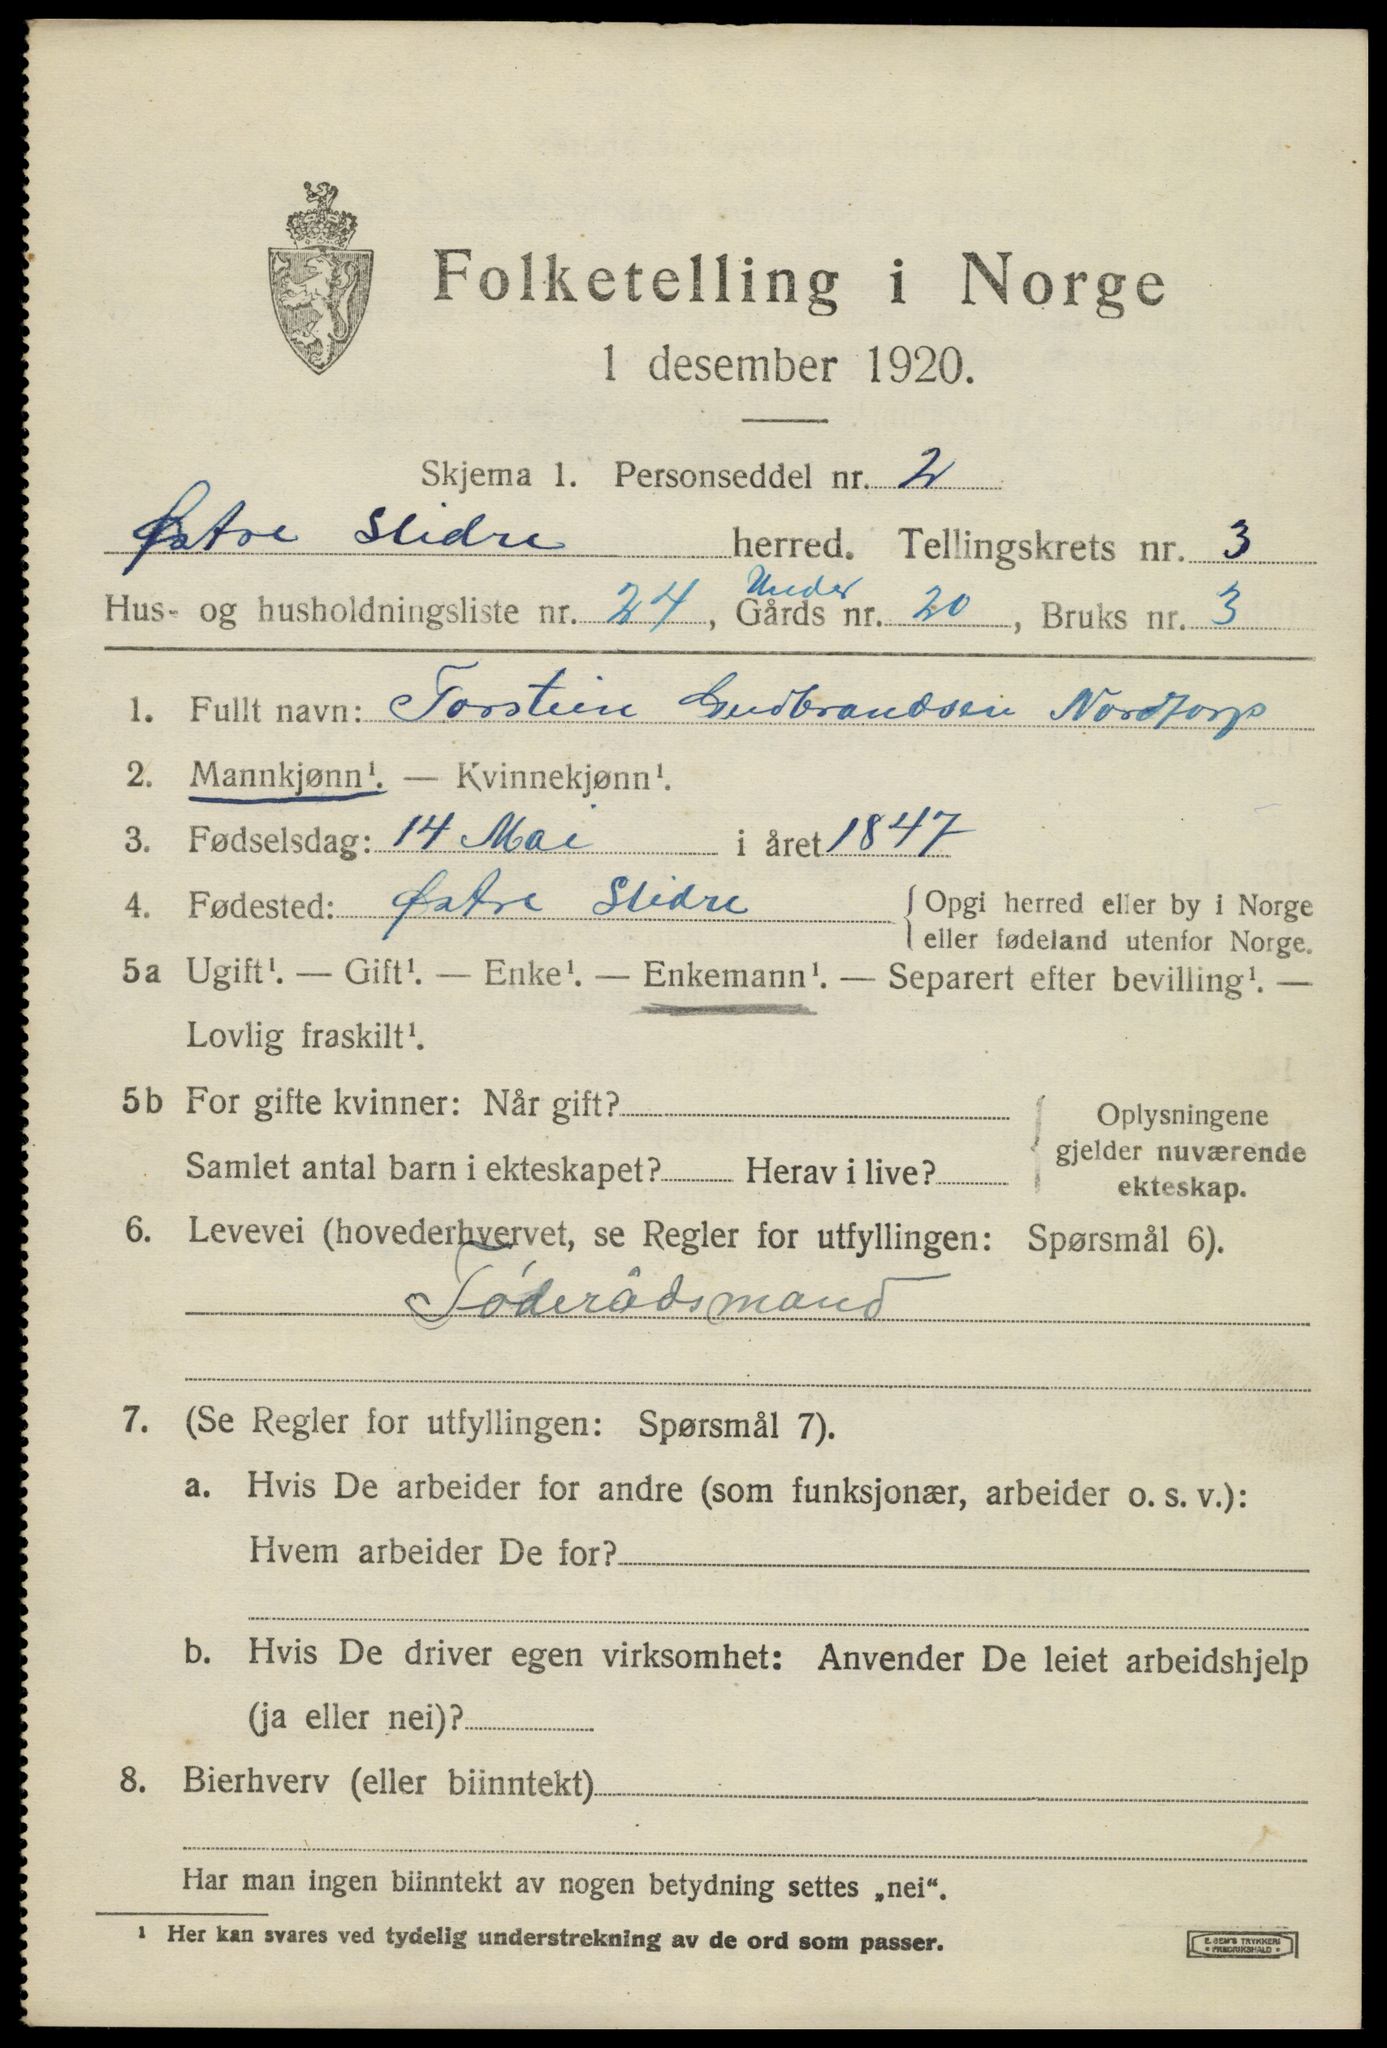 Folketelling i Norge
1 desember 1920.
Skjema 1. Personseddel nr. 2
Østre Slidre herred. Tellingskrets nr. 3
Under
Hus- og husholdningsliste nr. 24, Gårds nr. 20, Bruks nr. 3
1. Fullt navn: Torstein Gudbrandsen Nordtorp
2. Mannkjønn¹. — Kvinnekjønn¹.
3. Fødselsdag: 14 Mai i året 1847
4. Fødested: Østre Slidre { Opgi herred eller by i Norge
eller fødeland utenfor Norge.
5a Ugift¹. — Gift¹. — Enke¹. — Enkemann¹. — Separert efter bevilling¹. —
Lovlig fraskilt¹.
5b For gifte kvinner: Når gift?
Samlet antal barn i ekteskapet? Herav i live?
Oplysningene
gjelder nuværende
ekteskap.
6. Levevei (hovederhvervet, se Regler for utfyllingen: Spørsmål 6).
Føderådsmand
7. (Se Regler for utfyllingen: Spørsmål 7).
a. Hvis De arbeider for andre (som funksjonær, arbeider o. s. v.):
Hvem arbeider De for?
b. Hvis De driver egen virksomhet: Anvender De leiet arbeidshjelp
(ja eller nei)?
8. Bierhverv (eller biinntekt)
Har man ingen biinntekt av nogen betydning settes „nei“.
¹ Her kan svares ved tydelig understrekning av de ord som passer.
E. SEM'S TRYKKERI
• FREDRIKSHALD •